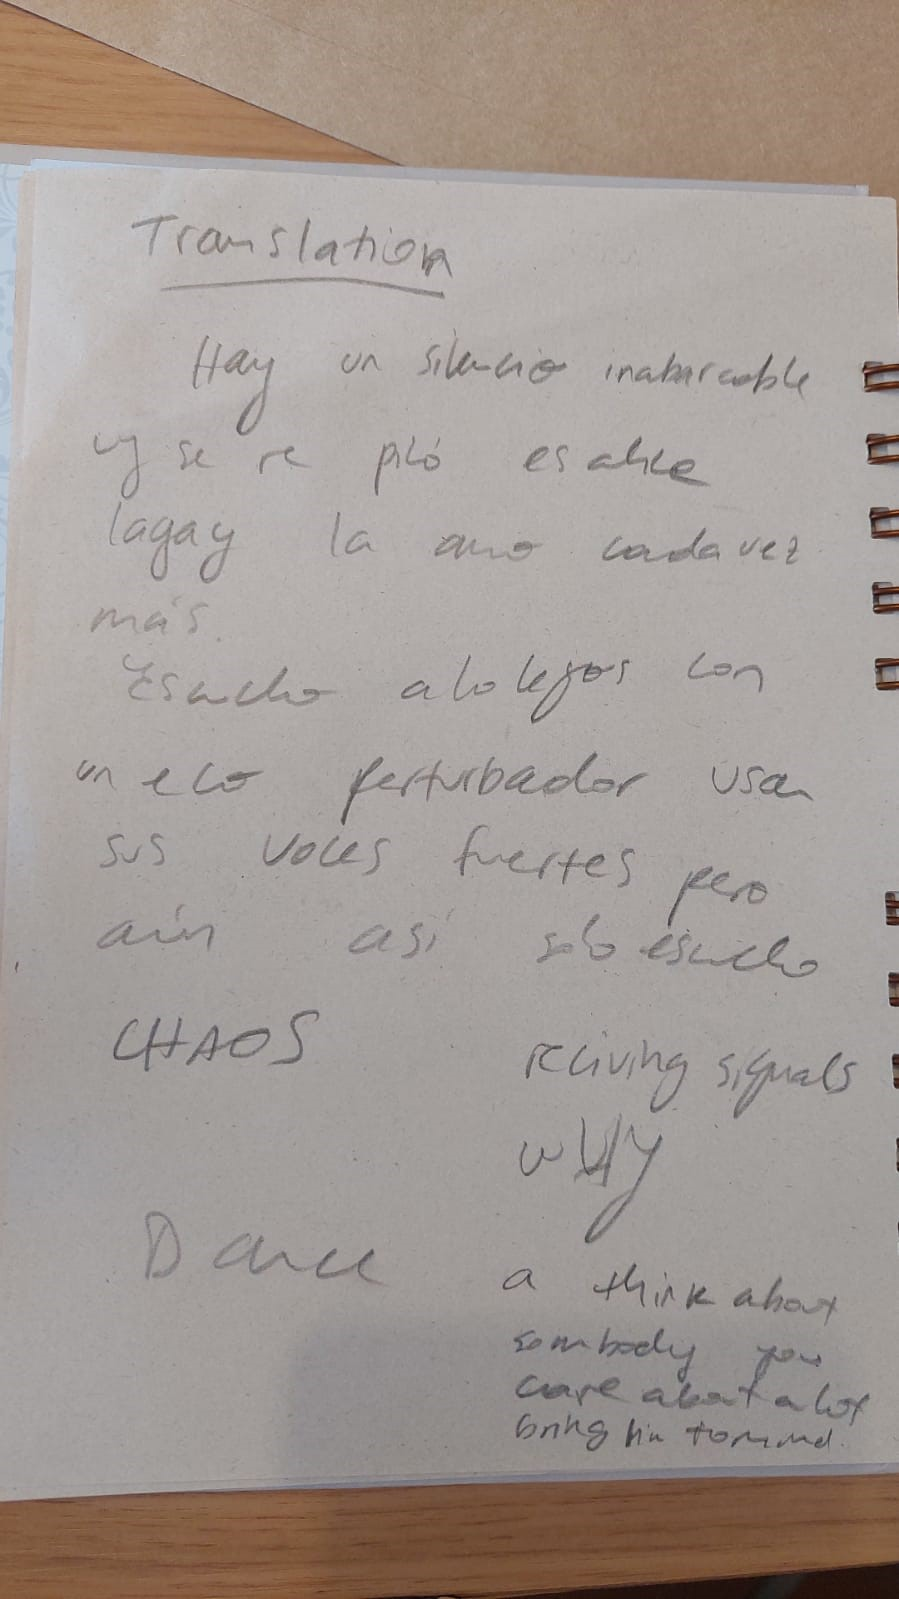 Translation
Hay un silencio inabarcable
y se re pitó es
lagay la amo cada vez
más.
Escucho a lo lejos con
un eco perturbador usan
sus voces fuertes pero
aún así solo escucho
CHAOS
reciving signals
WHY
Dance
a think about
sombody you
care about a lot
bring him to mind.